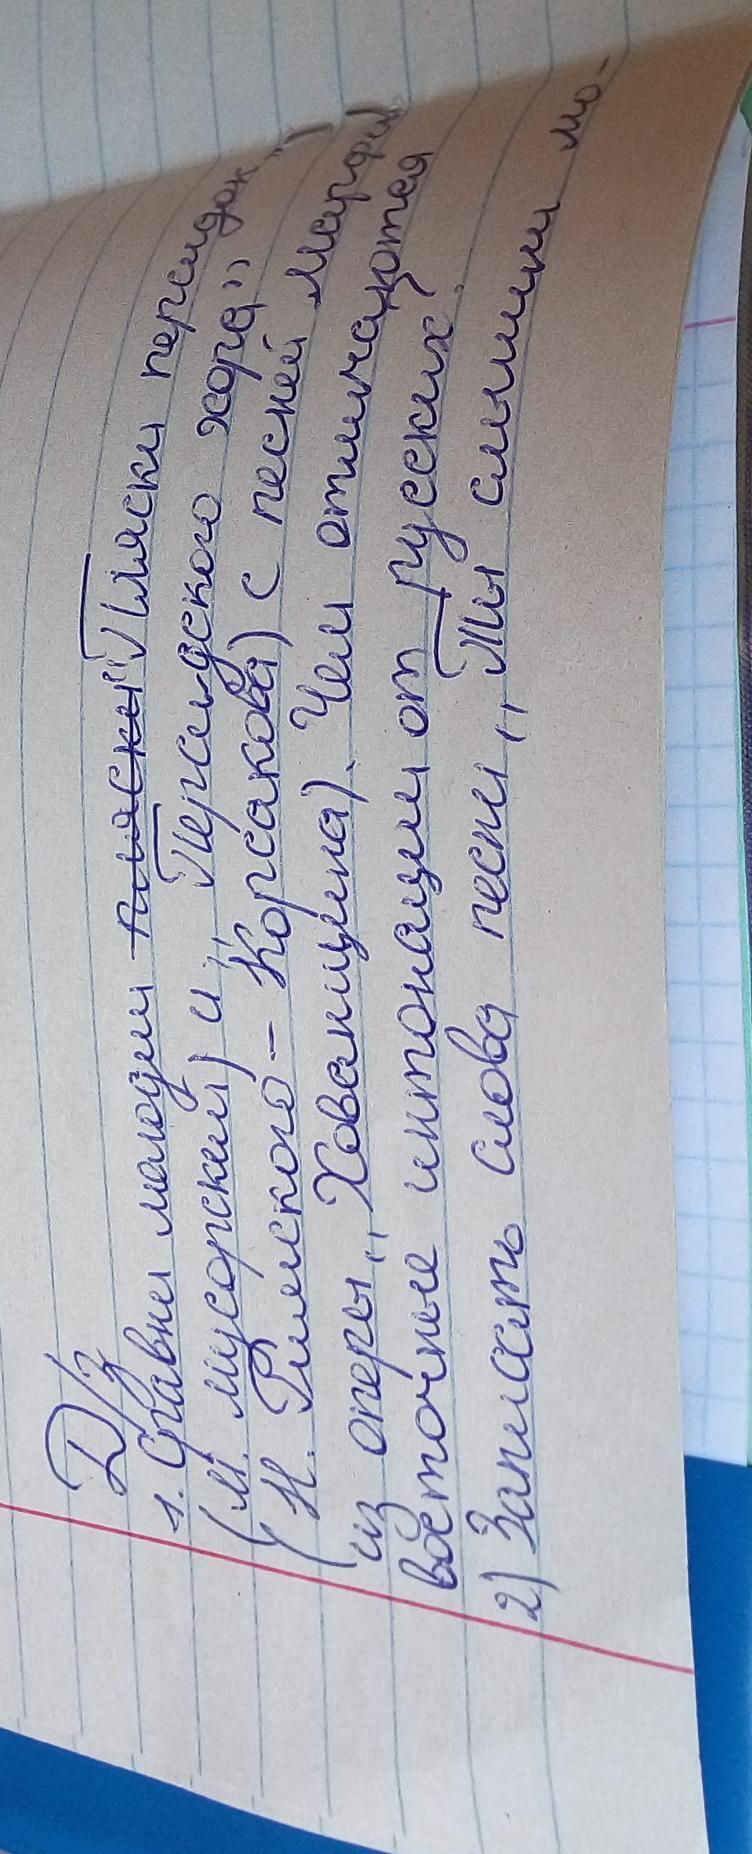 Д/з
1. Сравни мелодии пляски "Пляски персидок"
(М. Мусорский) и „Персидского хора"
(Н. Римского-Корсакова) с песней Марфы
(из оперы „Хованщина). Чем отличаются
восточные интонации от русских?
2) Записать слова песни „Ты слышишь мо-